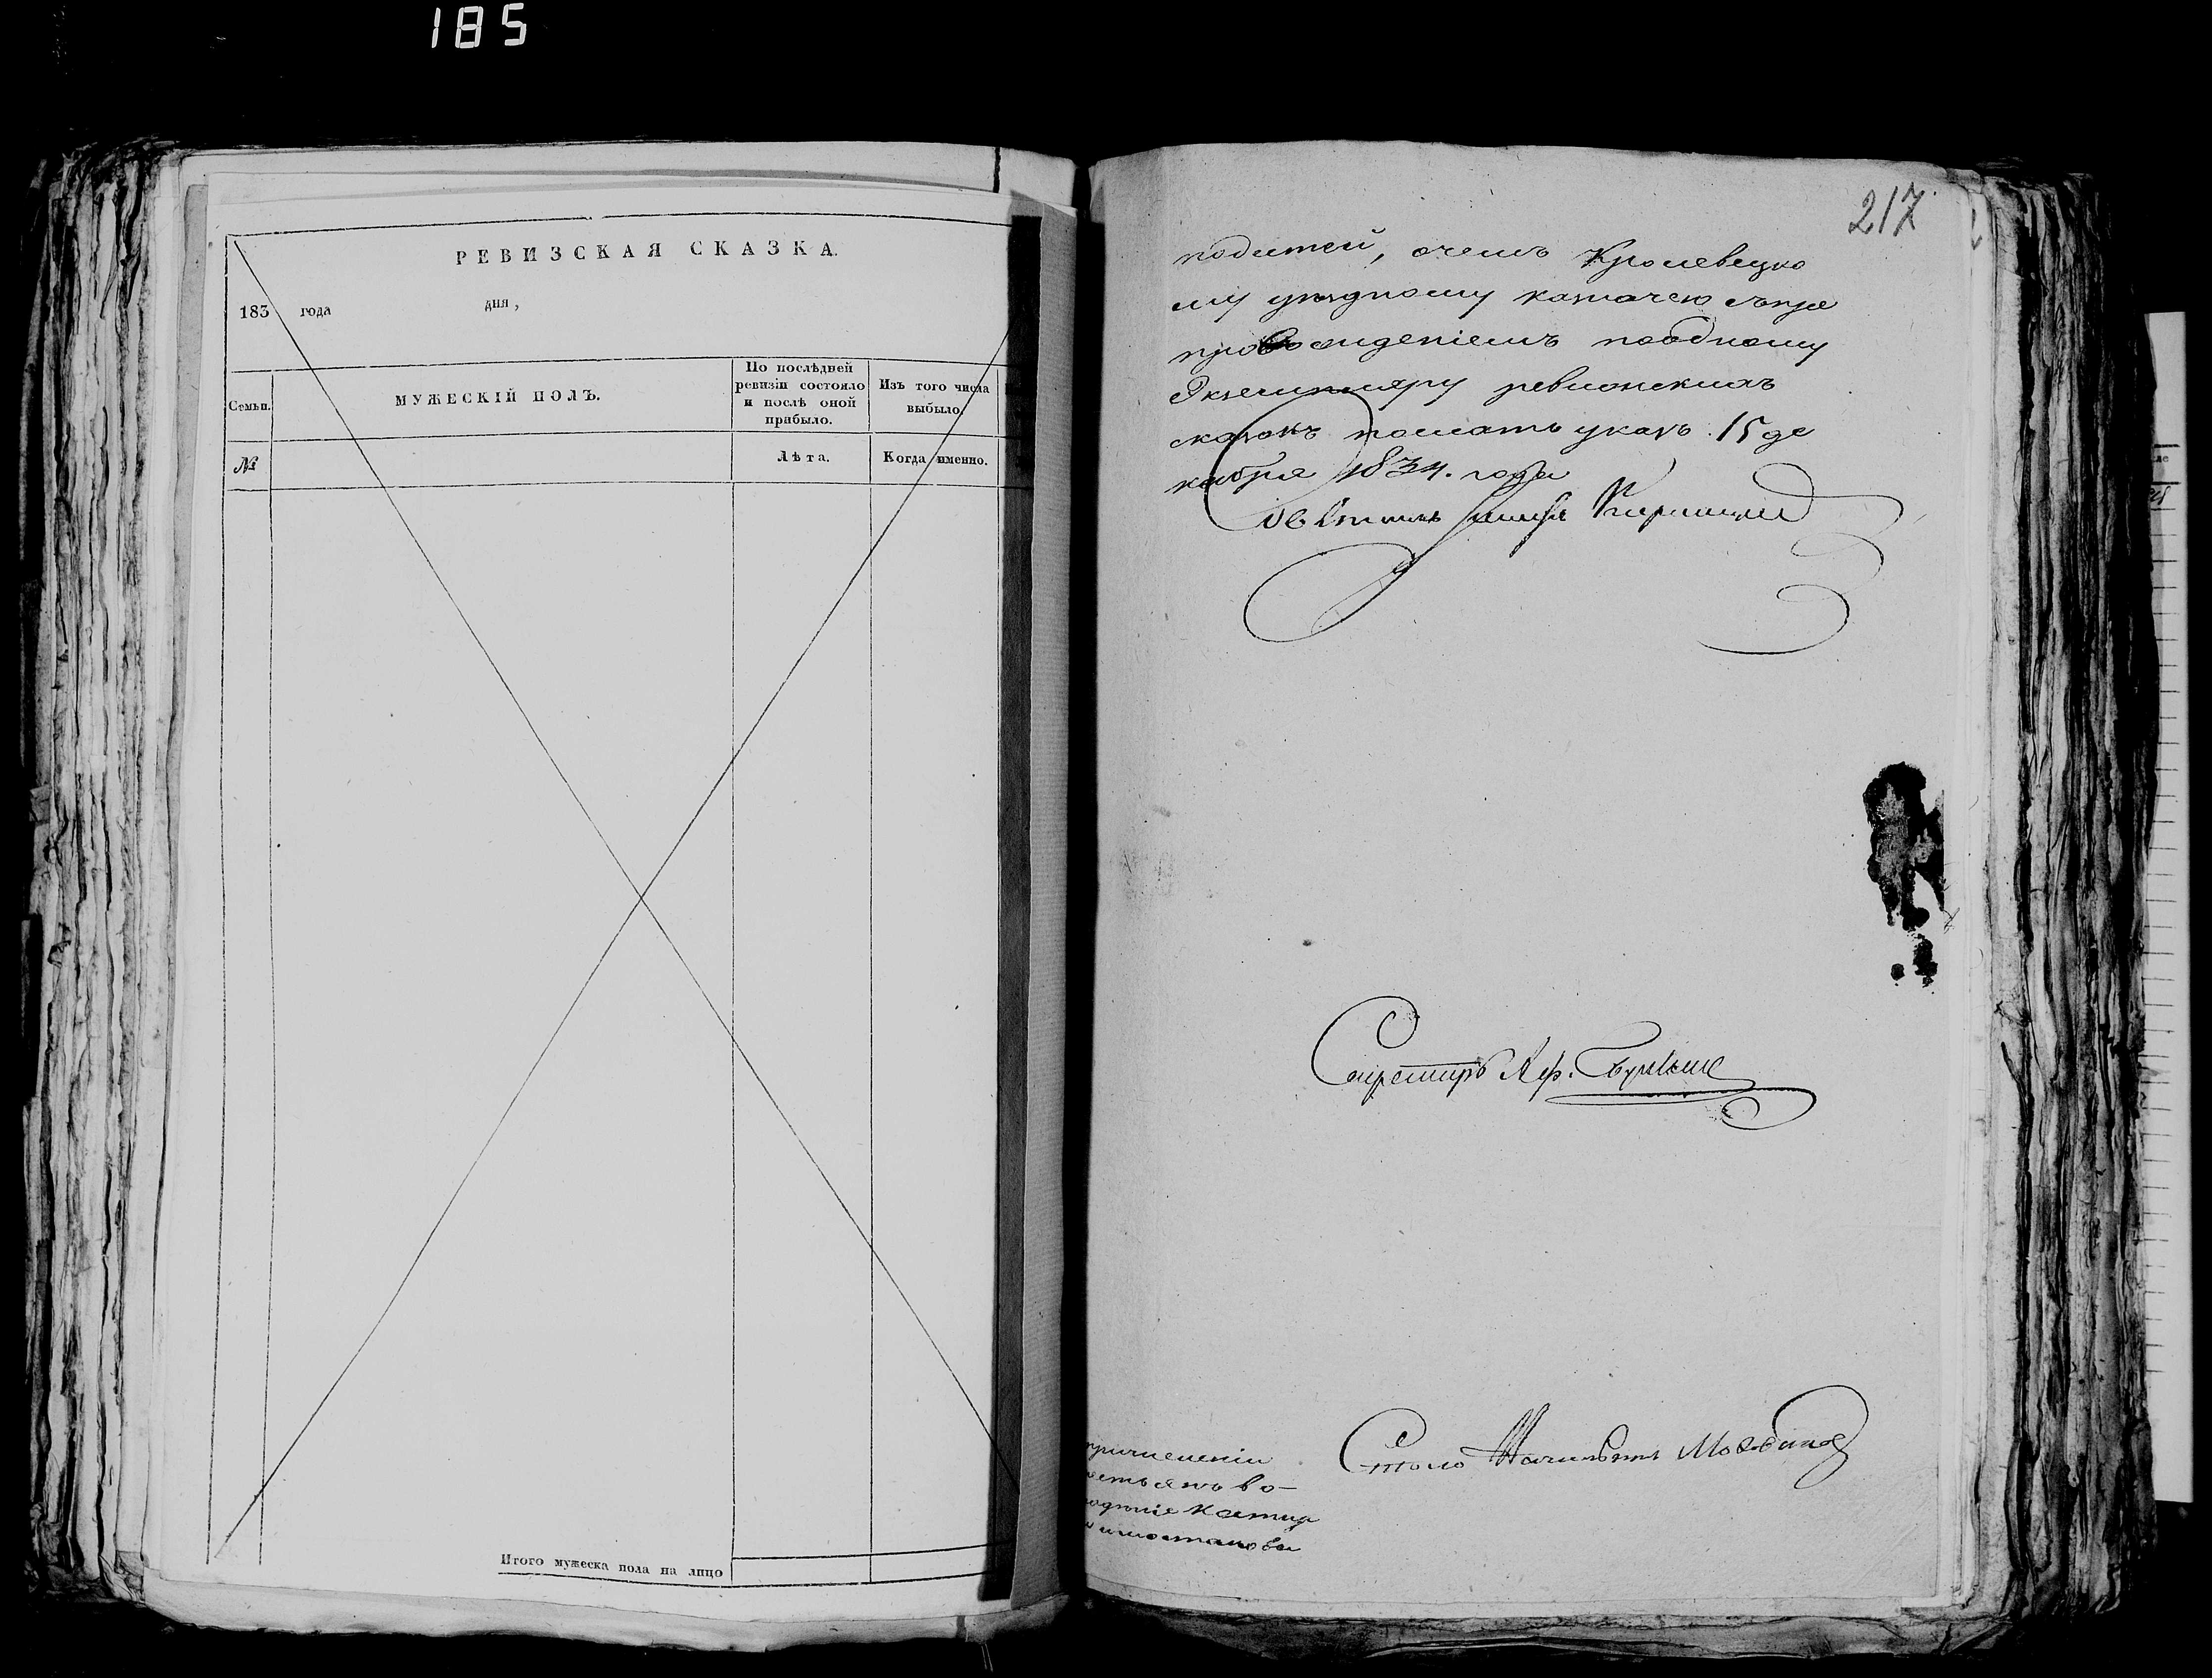 185
РЕВИЗСКАЯ СКАЗКА.
183 года дня,
Семьи.
МУЖЕСКІЙ ПОЛЪ.
По послѣдней
ревизіи состояло
и послѣ оной
прибыло.
Изъ того числа
выбыло.
№
Лѣта.
Когда именно.
Итого мужеска пола на лицо
217
податей, о чемъ Кролевецко
му уѣздному казначею съ пре
провожденіемъ по одному
Экземпляру ревизскихъ
сказокъ послать указъ. 15 де
кабря 1834. года
Совѣтникъ
Секретарь
Столоначальникъ
причисленіи
во-